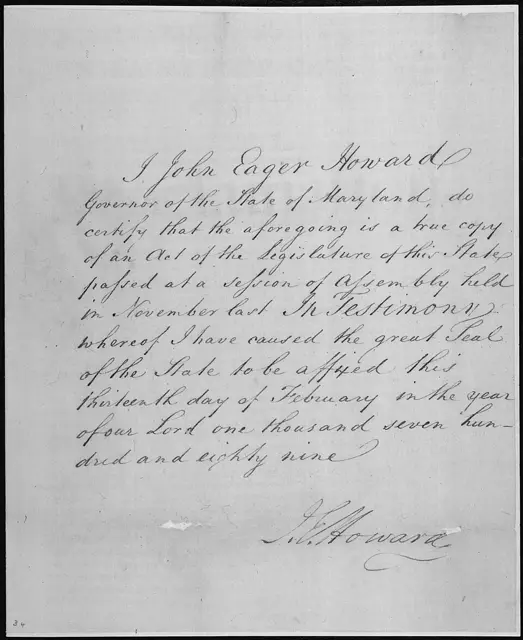 I John Eager Howard
Governor of the State of Maryland, do
certify that the aforegoing is a true copy
of an Act of the Legislature of this State
passed at a session of Assembly held
in November last In Testimony
whereof I have caused the great Seal
of the State to be affixed this
thirteenth day of February in the year
of our Lord one thousand seven hun-
dred and eighty nine
J. E. Howard
84